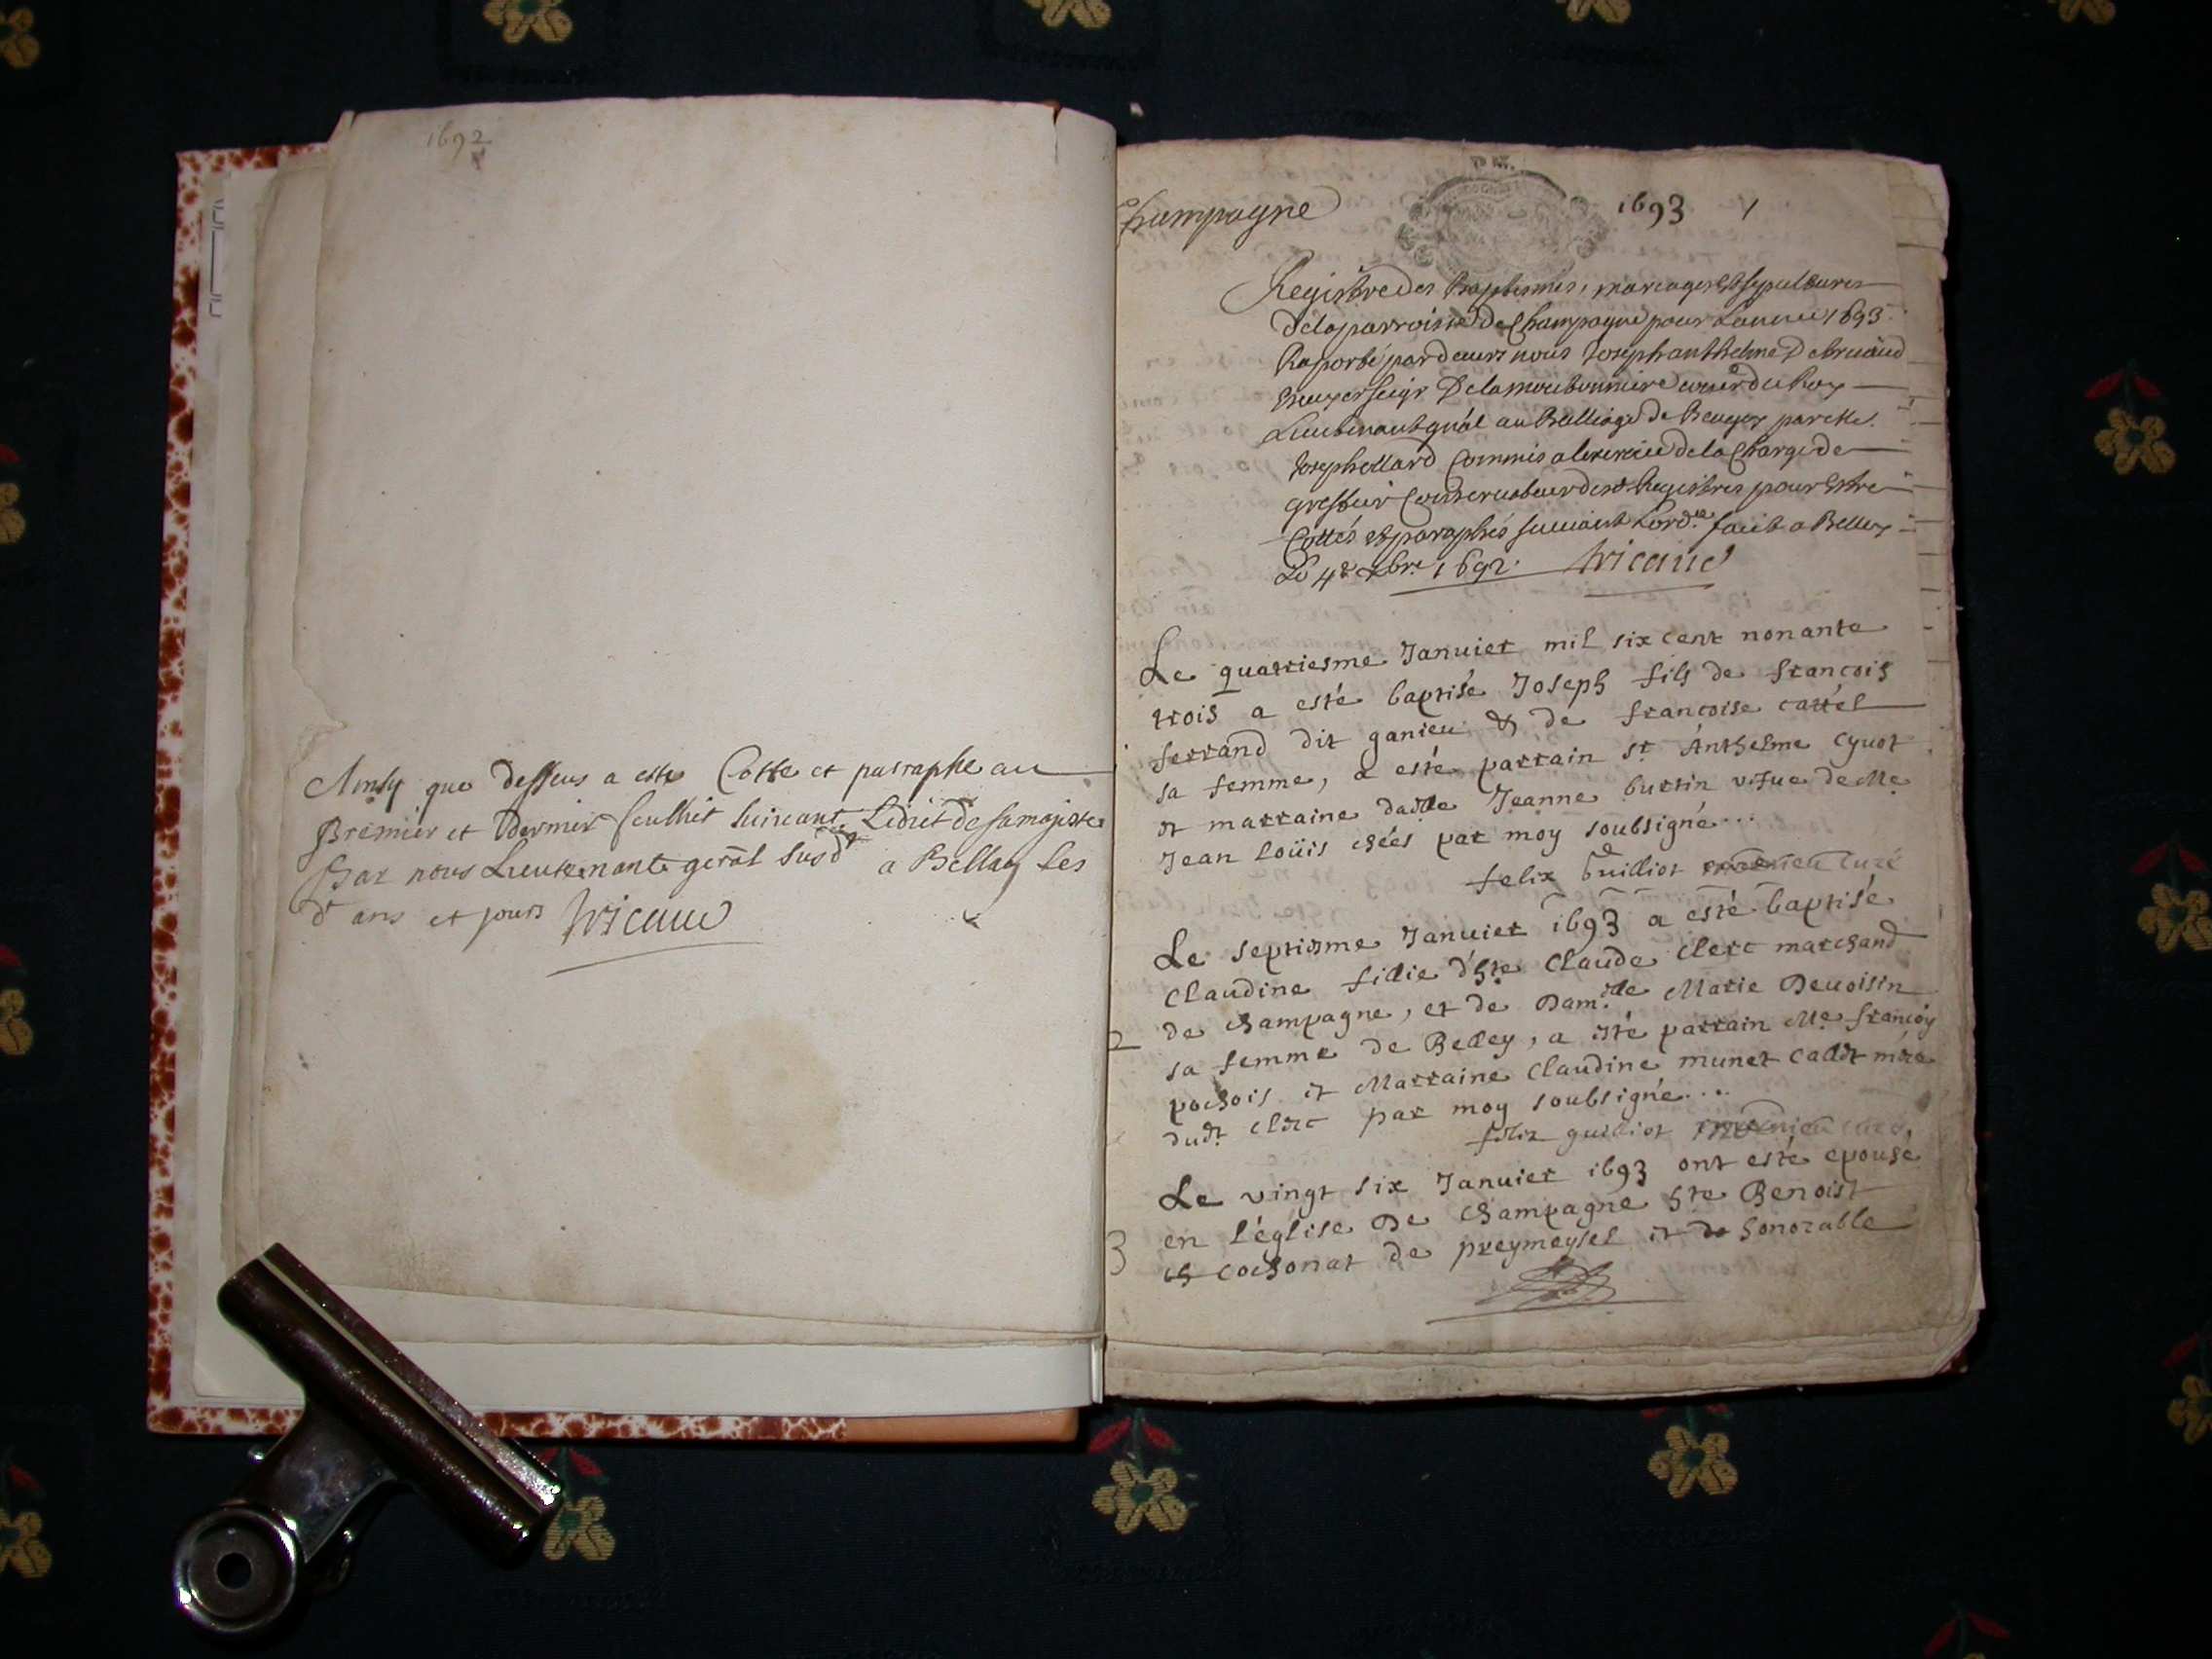 1692
Ainsy que dessus a este Cotte et parraphe au
Premier et Dernier feulliet suivant Ledict de sa majeste
Par nous Lieutenant gerãl susd a Bellay les
dt ans et jours
Champagne
1693 1
Registre des Baptesmes, mariages et sepultures
de la parroisse de Champagne pour Lannee 1693
Raporté par devers nous Joseph anthelme
seigr De la du Roy
Lieutenant gnãl au Balliage de Beugey par Me.
Joseph Commis a lexercice de la Charge de
greffier Conservateur desd Registres pour Estre
Cottés et paraphés suivant Lordce fait a Belley
Le 4e xbre 1692.
Le quatriesme Januier mil six cent nonante
trois a esté baptisé Joseph fils de françois
ferrand dit ganieu & de francoise cattel
sa femme, a esté parrain sr Anthelme cyuot
et marraine dadlle Jeanne burtin vefue de Me
Jean loüis par moy soubsigné...
felix guilliot curé
Le septiesme Januier 1693 a esté baptisé
Claudine fillie d'hte Claude Clerc marchand
de champagne, et de Damlle Marie Deuoisin
2
sa femme de Belley, a esté parrain Me françoy
pochois et Marraine Claudine munet mere
dudt clerc par moy soubsigné....
felix guilliot curé
Le vingt six Januier 1693 ont esté epousé
en l'église De champagne hte Benoist
3
cochonat de preymeysel et de honorable